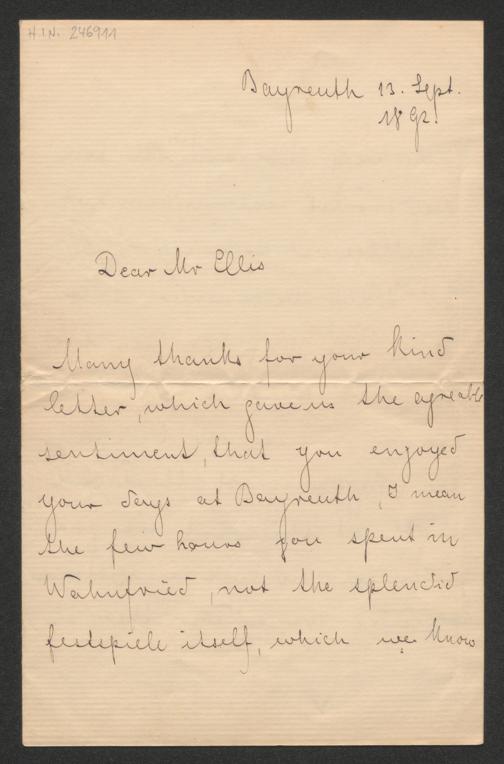 H.I.N. 246911
Bayreuth 13. Sept.
1892.
Dear Mr Ellis
Many thanks for your kind
letter, which gave us the agreable
sentiment, that you enjoyed
your days at Bayreuth, I mean
the few hours you spent in
Wahnfried, not the splendid
festspiele itself, which we know